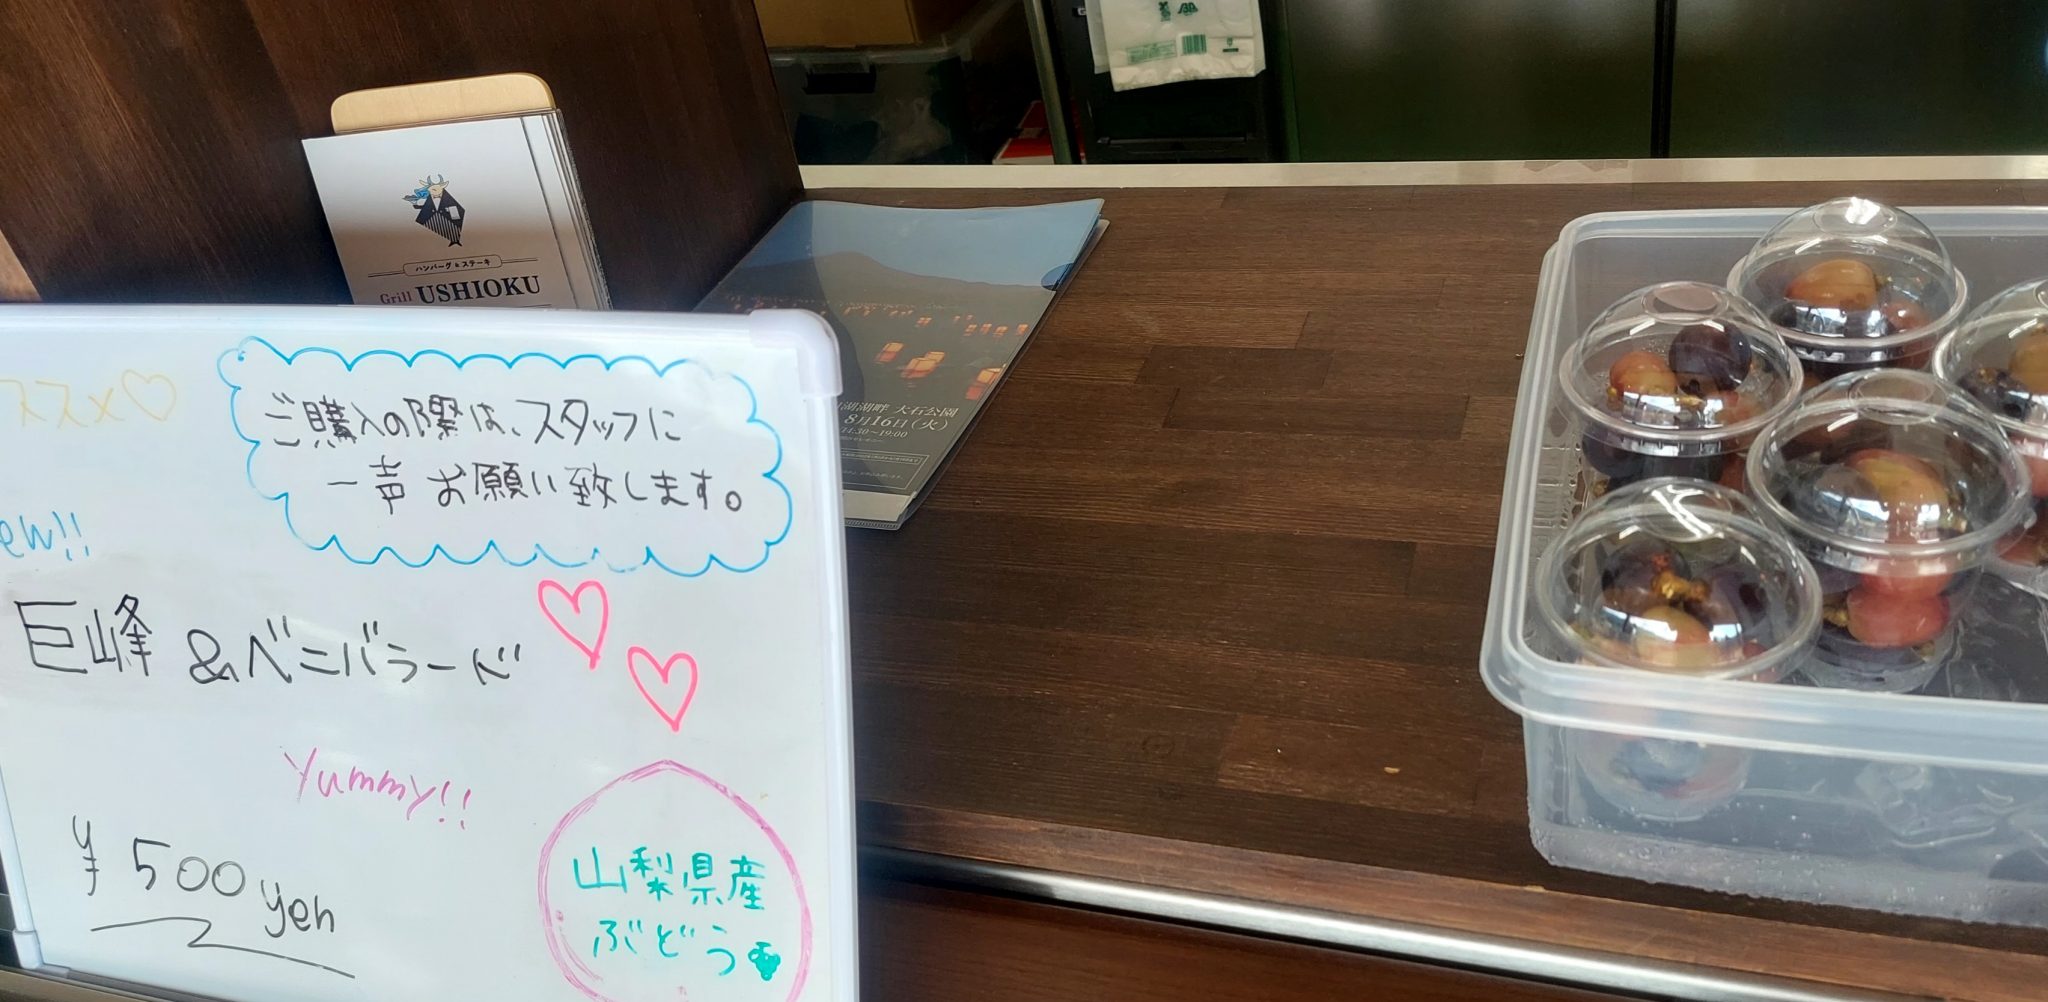 ハンバーグ&ステーキ
Grill USHIOKU
ススメ♡
ご購入の際は、スタッフに
一声 お願い致します。
ew!!
巨峰 &ベニバラード
Yummy!!
¥500yen
山梨県産
ぶどう
湖湖畔 大石公園
8月16日(火)
14:30~19:00